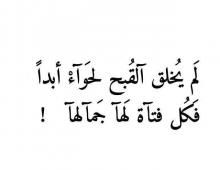 لَم يُخلق آلقُبح لحَوآءْ أبداً
فَكُل فتآة لَهآ جَمآلهآ !